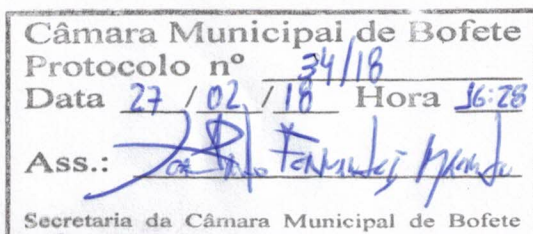 Câmara Municipal de Bofete
Protocolo nº 34/18
Data 27 / 02 / 18 Hora 16:28
Ass.: Fernandes
Secretaria da Câmara Municipal de Bofete